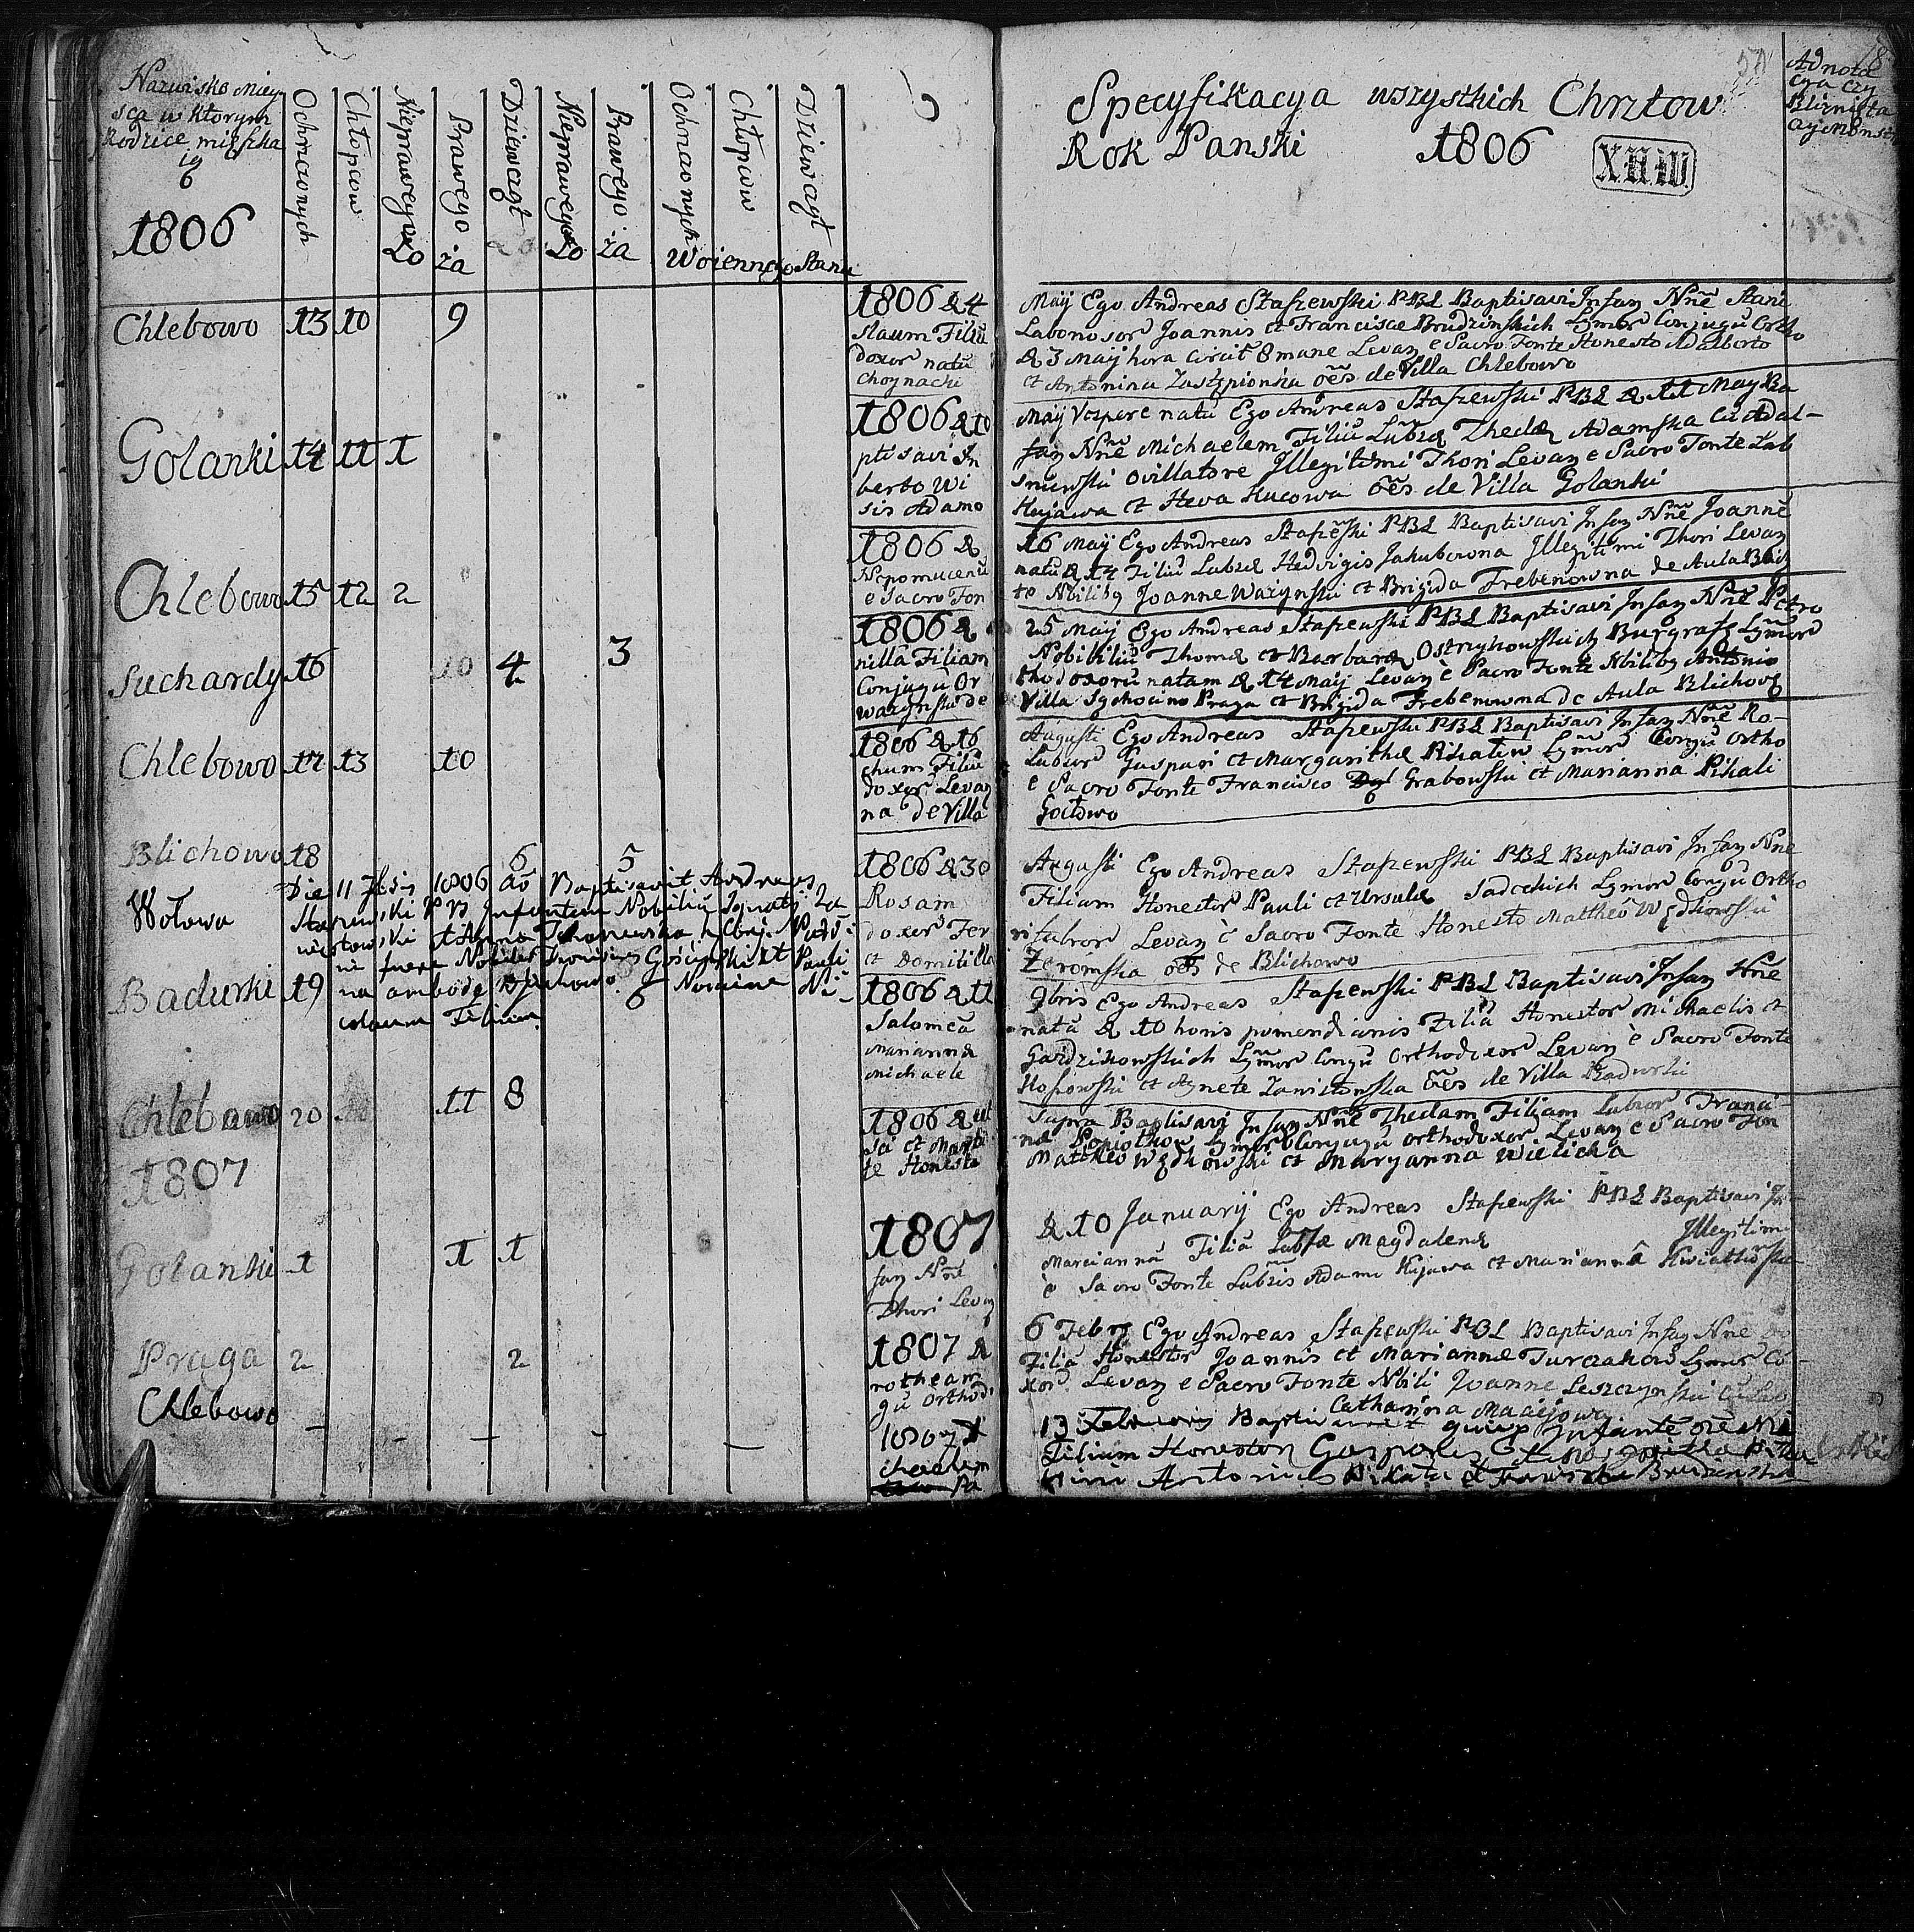 Nazwisko miey
sca w którym
Rodzice mieszka
ią
1806
Ochrzconych
Chłopcow
Nieprawego Lo
Prawego ża
Dziewcząt
Nieprawego Lo
Prawego ża
Ochrzconych
Chłopców
Dziewcząt
Woiennego Stanu
Specyfikacya wszystkich Chrztow
Rok Panski 1806
XIIW.
57
Adnota
cya czy
Bliznięta
czy monst
Chlebowo 13 10 9
1806 d 4 Maij Ego Andreas Staszewski PBL Baptisavi Infan Nñe Stani
slaum Filiũ Laboriosor Joannis et Francisce Brudzinskich Lgmor Conjugũ Ortho
doxor natũ d 3 Maij hora circit 8 mane Levan e Sacro Fonte Honesto Adalberto
Choynacki et Antonina Zastępionka oẽs de Villa Chlebowo
Golanki 14 11 1
1806 d 10 Maij Vespere natũ Ego Andreas Staszewski PBL d 11 May Ba
ptisavi In fan Nñe Michaelem Filiũ Labrae Theclae Adamska cũ Adal-
berto Wi sniewski ovillatore Illegitimi Thori Levan e Sacro Fonte Lab
sis Adamo Kujawa et Heva Kucowa oẽs de Villa Golanki
Chlebowo 15 12 2
1806 d 16 Maij Ego Andreas Staszẽski PBL Baptisavi Infan Nñe Joannẽ
Nepomucenũ natũ d 14 Filiũ Labrae Hedvigis Jakubowna Illegitimi Thori Levan
e Sacro Fon te Nbilibq Joanne Wazynski et Brigida Trebenowna de Aula Blich
Suchardy 16 10 4 3
1806 d 25 Maij Ego Andreas Staszewski PBL Baptisavi Infan Nñe Petro
nilla Filiam Nobiliũ Thomae et Barbarae Ostrzykowskich Burgrafz Lgmor
Conjugũ Or thodoxorũ natam d 14 Maij Levan è Sacro Fonte Nbilibq Antonio
Wazynski de Villa Sychocino Praga et Brigida Trebenowna de Aula Blichovę
Chlebowo 17 13 10
1806 d 16 Augusti Ego Andreas Staszewski PBL Baptisavi Infan Nñe Ro-
chum Filiũ Labror Gaspari et Margarithae Pikatiw Lgmor Conjũ Ortho
doxor Levan e Sacro Fonte Francisco Grabowski et Marianna Pikali
na de Villa Goclowo
Blichowo 18 6 5
1806 d 30 Augusti Ego Andreas Staszewski PBL Baptisavi Infan Nñe
Rosam Filiam Honestor Pauli et Ursulae Sadeckich Lgmor Conjũ Ortho
doxor Fer rifabror Levan è Sacro Fonte Honesto Mattheo Wędkowski
et Domitilla Zeromska oẽs de Blichowo
Wołowa
Die 11 7bris 1806 ao Baptisavit Andreas
Staszewski PB Infantem Nobiliũ Ignatij Za
wistowski et Anna
ni fuere Nobiles Gościnski et Pauli
na ambo de Blichowo Nomine Ni-
colaum Filium
Badurki 19 6
1806 d 11 9bris Ego Andreas Staszewski PBL Baptisavi Infan Nñe
Salomeã natã d 10 horis pomeridianis Filiã Honestor Michaelis et
Marianna Gardzikowskich Lgmor Conjũ Orthodoxor Levan è Sacro Fonte
Michaele Kossowski et Agnete Zawistowska oẽs de Villa Badurki
Chlebowo 20 11 8
1806 d ut Supra Baptisavi Infan Nñe Theclam Filiam Labror Franci
sci et Marian nae Lgmor Conjugũ Orthodoxor Levan e Sacro Fon
te Honesto Mattheo Wędkowski et Maryanna Wielicka
1807
Golanki 1 1 1
1807 d 10 January Ego Andreas Staszewski PBL Baptisavi In-
fan Nñe Mariannã Filiã Labrae Magdalenae Illegitimi
Thori Levan è Sacro Fonte Labris Adami Kujawa et Mariannã Kwiatkowska
Praga 2 2
1807 d 6 Febry Ego Andreas Staszewski PBL Baptisavi Infan Nñe Do
rotheam Filiã Honestor Joannis et Mariannae Turczakow Lgmor Co-
gũ Orthod xor Levan e Sacro Fonte Nbili Joanne Leszczynski
Catharina Maciejowa
Chlebowo
1807 13 February Infante Mi
chaelem Filium Honestor Gasparis et
Antonius Pikata et Brudzinska